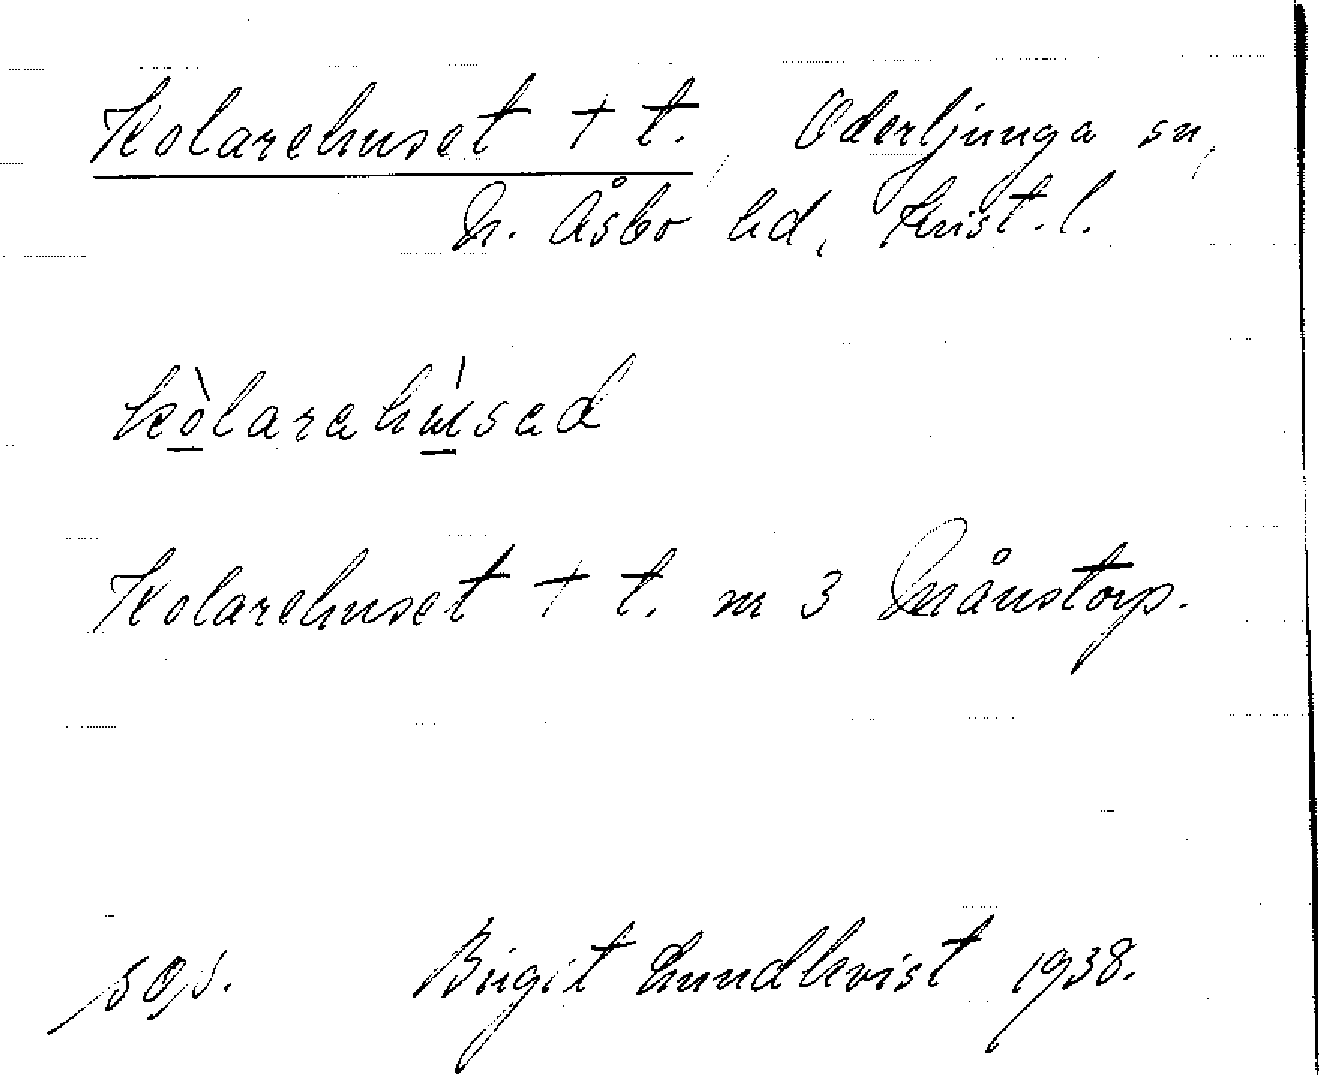 Kolarehuset † t., Oderljunga sn,
N. Åsbo hd, Krist. l.
kòlarahúsad
Kolarehuset † t. nr 3 Månstorp.
Birgit Lundkvist 1938.